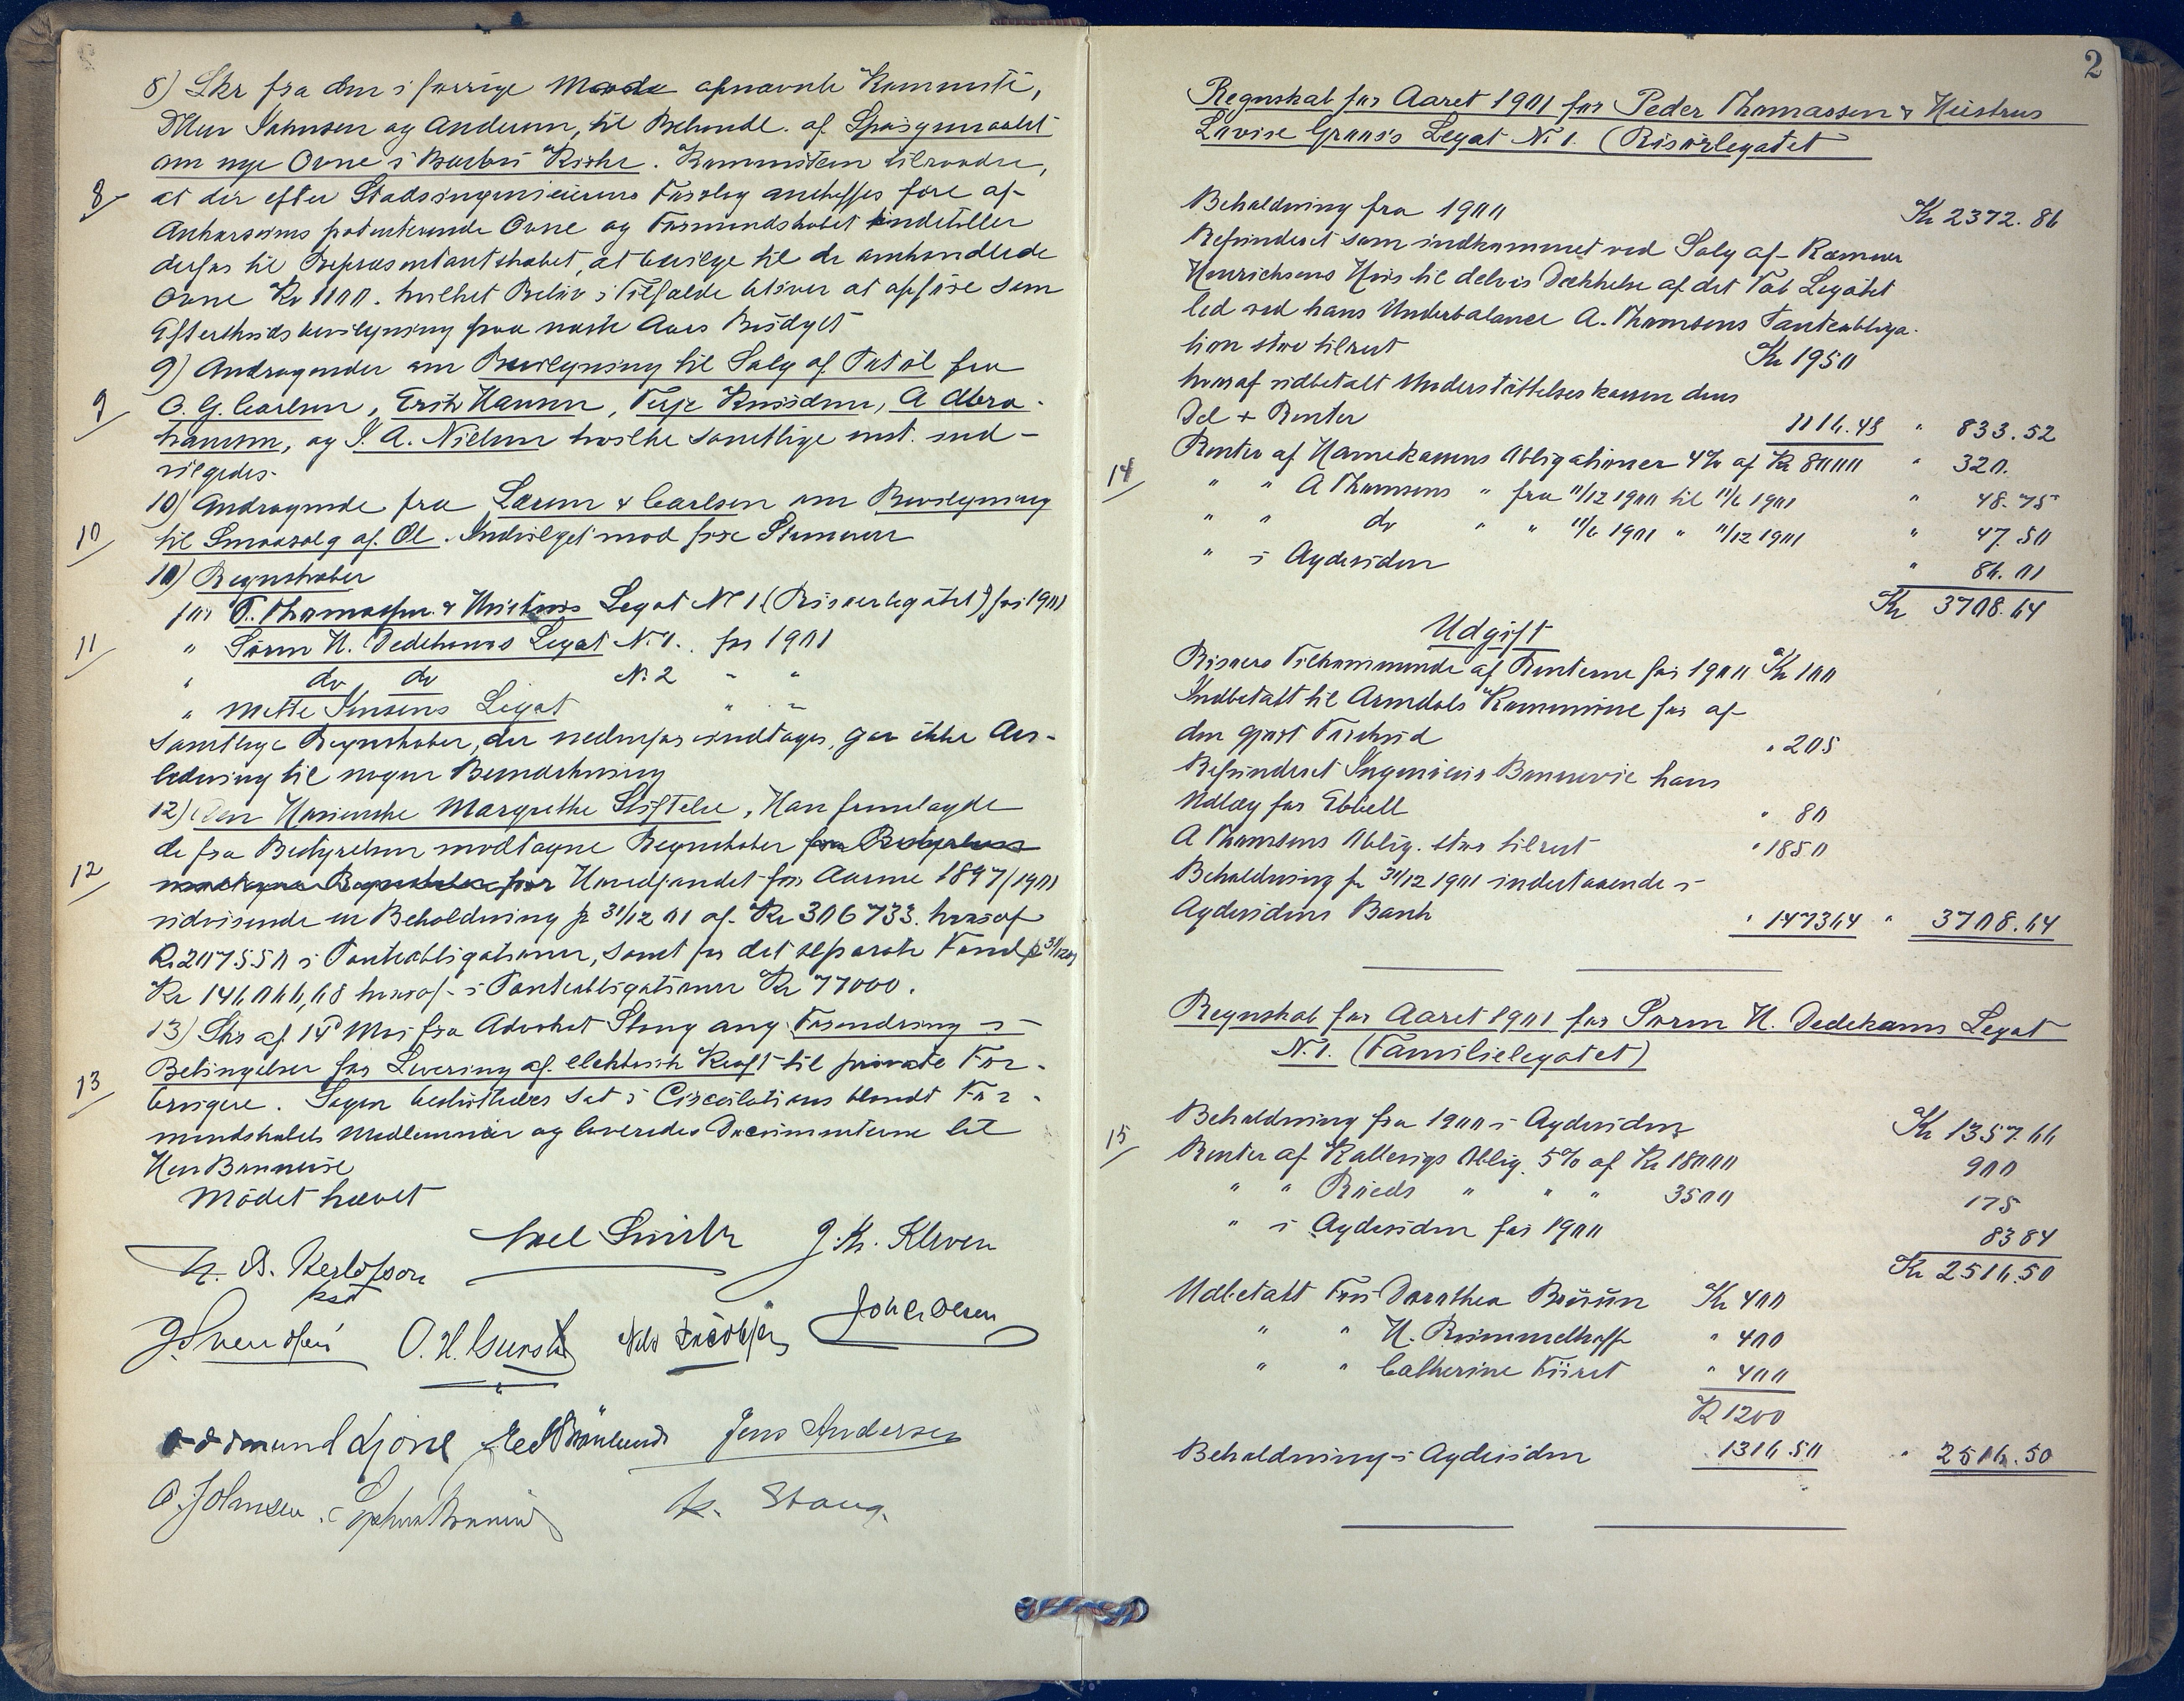 8) Skr fra den i forrige Møde opnævnte Kommité,
DHrr Johnsen og Andersen, til Behandl. af Spørgsmaalet
om nye Ovne i Barbu Kirke. Kommiteen tilraader,
8 at der efter Stadsingeniørens Forslag anskaffes fire af
patenterede Ovne og Formandskabet indstiller
derfor til Repræsentantskabet, at bevilge til de omhandlede
Ovne Kr 1100. hvilket Beløb i Tilfælde bliver at opføre som
Efterskudsbevilgning paa næste Aars Budget
9) Andragender om Bevilgning til Salg af Tat øl fra
9 C. G. Carlsen, Erik Hansen, Terje Knudsen, A Abra-
hamsen, og J. A. Nielsen hvilke samtlige enst. ind-
vilgedes.
10) Andragende fra Larsen & Carlsen om Bevilgning
10 til Smaasalg af Øl. Indvilget mod fire Stemmer
10) Regnskaber
for P. Thomassen & Hustrus Legat No 1 (Risørlegatet) for 1901
11 " Søren H. Dedekams Legat N. 1. for 1901
" do do N. 2 " "
" Mette Jensens Legat " "
Samtlige Regnskaber, der nedenfor indtages, gav ikke An-
ledning til nogen Bemærkning
12) Den Kallevigske Margrethe Stiftelse. Man fremlagde
de fra Bestyrelsen modtagne Regnskaber fra Bestyrelsen
12 modtagne Regnskaber for Hovedfondet for Aarene 1897/1901
udvisende en Beholdning pr 31/12 01 af Kr 306733. hvoraf
Kr 207550 i Panteobligationer, samt for det separate Fond pr 31/12 01
Kr 146066,68 hvoraf i Panteobligationer Kr 77000.
13) Skr af 15 Mai fra Advokat Stang ang. Forandring i
Betingelser for Levering af elektrisk Kraft til private For-
13 brugere. Sagen besluttedes sat i Circulation blandt For-
mandskabets Medlemmer og leveredes Documenterne til
Herr Bonnevie
Mødet hævet
Axel Smith J. Kr. Kleven
N. B. Herlofson
J. Svendsen O. H. Nels Jacobsen Joh. Olsen
Oddmund Ljone Jens Andersen
O. Johnsen. K. Stang.
2
Regnskab for Aaret 1901 for Peder Thomassen & Hustrus
Lovise Graus's Legat N. 1. (Risørlegatet
Beholdning fra 1900 Kr 2372.86
Refunderet som indkommet ved Salg af Kæmner
Henrichsens Hus til delvis Dækkelse af det Tab Legatet
led ved hans Underbalance A. Thomsens Panteobliga-
tion stor tilrest Kr 1950
hvoraf udbetalt Understøttelseskassen dens
Del + Renter 1116.48 " 833.52
14 Renter af Havnekassens Obligationer 4% af Kr 8000 " 320.
" " A Thomsens " fra 11/12 1900 til 11/6 1901 " 48.75
" " do " " 11/6 1901 " 11/12 1901 " 47.50
" i Agdesiden " 86.01
Kr 3708.64
Udgift
Risørs Tilkommende af Renterne for 1900 Kr 100
Indbetalt til Arendals Kommune for af
den gjort Forskud " 205
Refunderet Ingeniør Bonnevie hans
Udlæg for Ebbell " 80
A Thomsens Oblig. stor tilrest " 1850
Beholdning pr 31/12 1901 indestaaende i
Agdesidens Bank " 1473.64 " 3708.64
Regnskab for Aaret 1901 for Søren H. Dedekams Legat
N. 1. (Familielegatet)
Beholdning fra 1900 i Agdesiden Kr 1357.66
15 Renter af Kallevigs Oblig. 5% af Kr 18000 900
" " Rueds " " " 3500 175
" i Agdesiden for 1900 83 84
Kr 2516.50
Udbetalt Frk Dorothea Bruun Kr 400
" " H. Rømmelhoff " 400
" " Catherine Fürst " 400
Kr 1200
Beholdning i Agdesiden 1316.50 " 2516.50